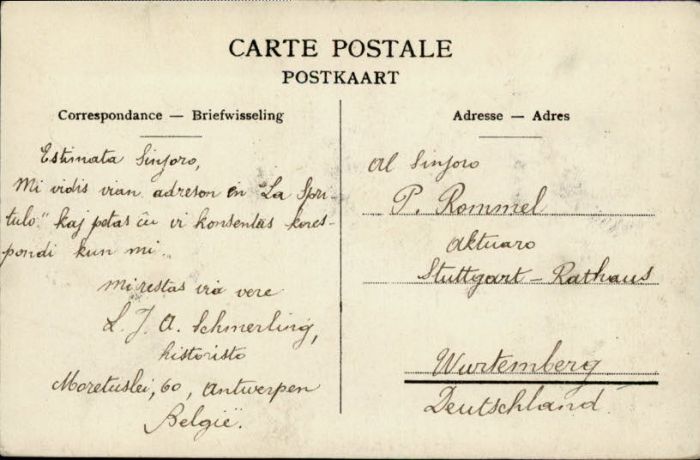 CARTE POSTALE
POSTKAART
Correspondance — Briefwisseling
Estimata Sinjoro,
Mi vidis vian adreson en "La Spri-
tulo." kaj petas ĉu vi konsentas kores-
pondi kun mi.
mi restas via vere
L. J. A. Schmerling,
historisto
Moretuslei, 60, Antwerpen
België.
Adresse — Adres
Al Sinjoro
P. Rommel
Aktuaro
Stuttgart - Rathaus
Wurtemberg
Deutschland